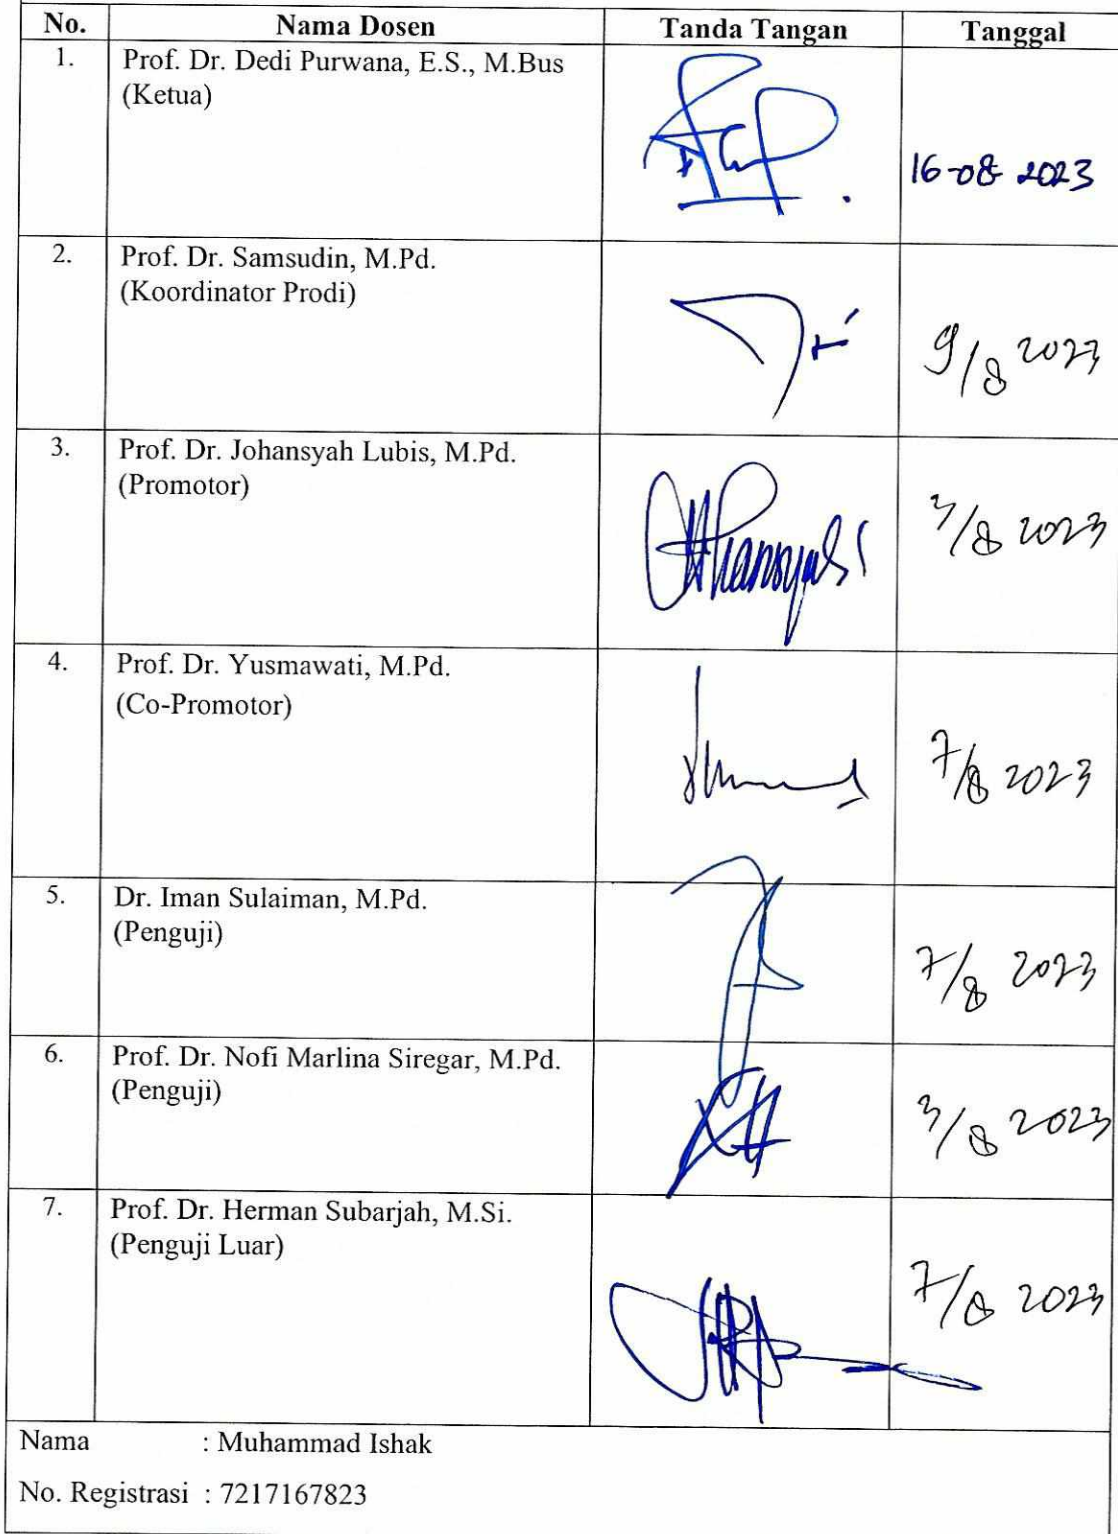 No. Nama Dosen Tanda Tangan Tanggal
1. Prof. Dr. Dedi Purwana, E.S., M.Bus
(Ketua)
16-08 2023
2. Prof. Dr. Samsudin, M.Pd.
(Koordinator Prodi)
9/8 2023
3. Prof. Dr. Johansyah Lubis, M.Pd.
(Promotor)
3/8 2023
4. Prof. Dr. Yusmawati, M.Pd.
(Co-Promotor)
7/8 2023
5. Dr. Iman Sulaiman, M.Pd.
(Penguji)
7/8 2023
6. Prof. Dr. Nofi Marlina Siregar, M.Pd.
(Penguji)
3/8 2023
7. Prof. Dr. Herman Subarjah, M.Si.
(Penguji Luar)
7/8 2023
Nama : Muhammad Ishak
No. Registrasi : 7217167823